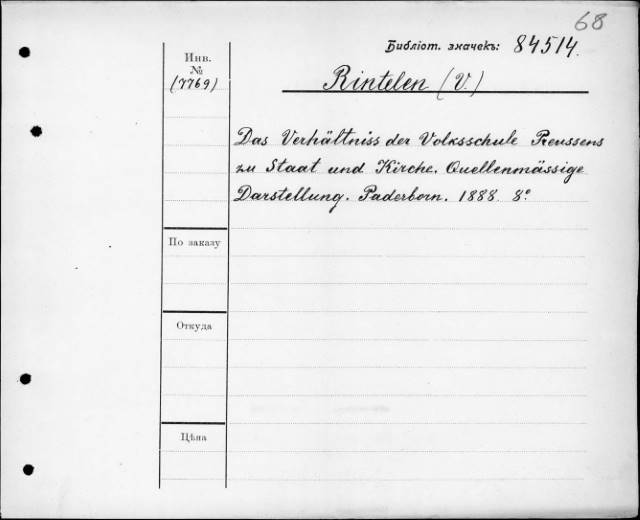 68
Библіот. значекъ: 84514.
Инв.
№
(7769)
Rintelen (V.)
Das Verhältniss der Volksschule Preussens
zu Staat und Kirche. Quellenmässige
Darstellung. Paderborn. 1888. 8º
По заказу
Откуда
Цѣна